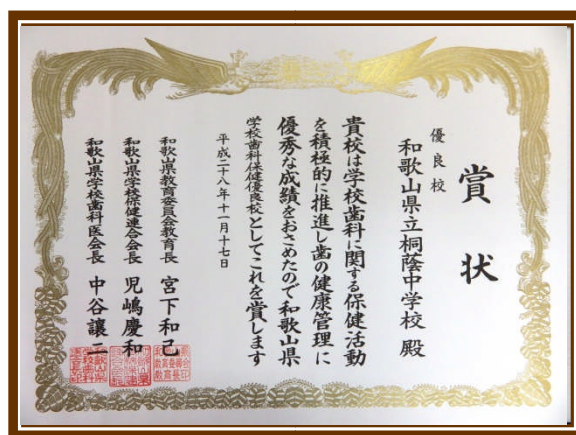 賞状
優良校
和歌山県立桐蔭中学校 殿
貴校は学校歯科に関する保健活動
を積極的に推進し歯の健康管理に
優秀な成績をおさめたので和歌山県
学校歯科保健優良校としてこれを賞します
平成二十八年十一月十七日
和歌山県教育委員会教育長 宮下和己
和歌山県学校保健連合会長 児嶋慶和
和歌山県学校歯科医会長 中谷譲二